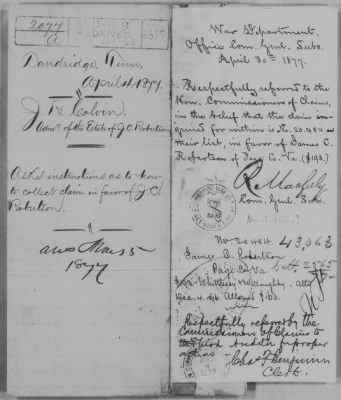 2077
A
Dandridge Tenn.
April 4, 1877.
J. W. Colvin.
Admr. of the Estate of J. C. Robertson
Asks instructions as to how
to collect claim in favor of J. C.
Robertson.
ans May 5
1877
War Department,
Office Com. Genl. Subs.
April 30th 1877.
Respectfully referred to the
Hon. Commissioners of Claims,
in the belief that the claim in-
quired for within is No. 20,484 on
their list, in favor of James C.
Robertson of Page Co. Va. ($195.)
R. Macfeely
Com. Genl. Subs.
No 20484. 43,063
James C. Robertson
Page Co. Va.
Whittlesey & Willoughby, atts
Dec. 4. 1876 Allowed $165.
Respectfully referred by the
Commissioners of Claims to
the Third Auditor for proper
action.
Chas F Benjamin
Clerk.